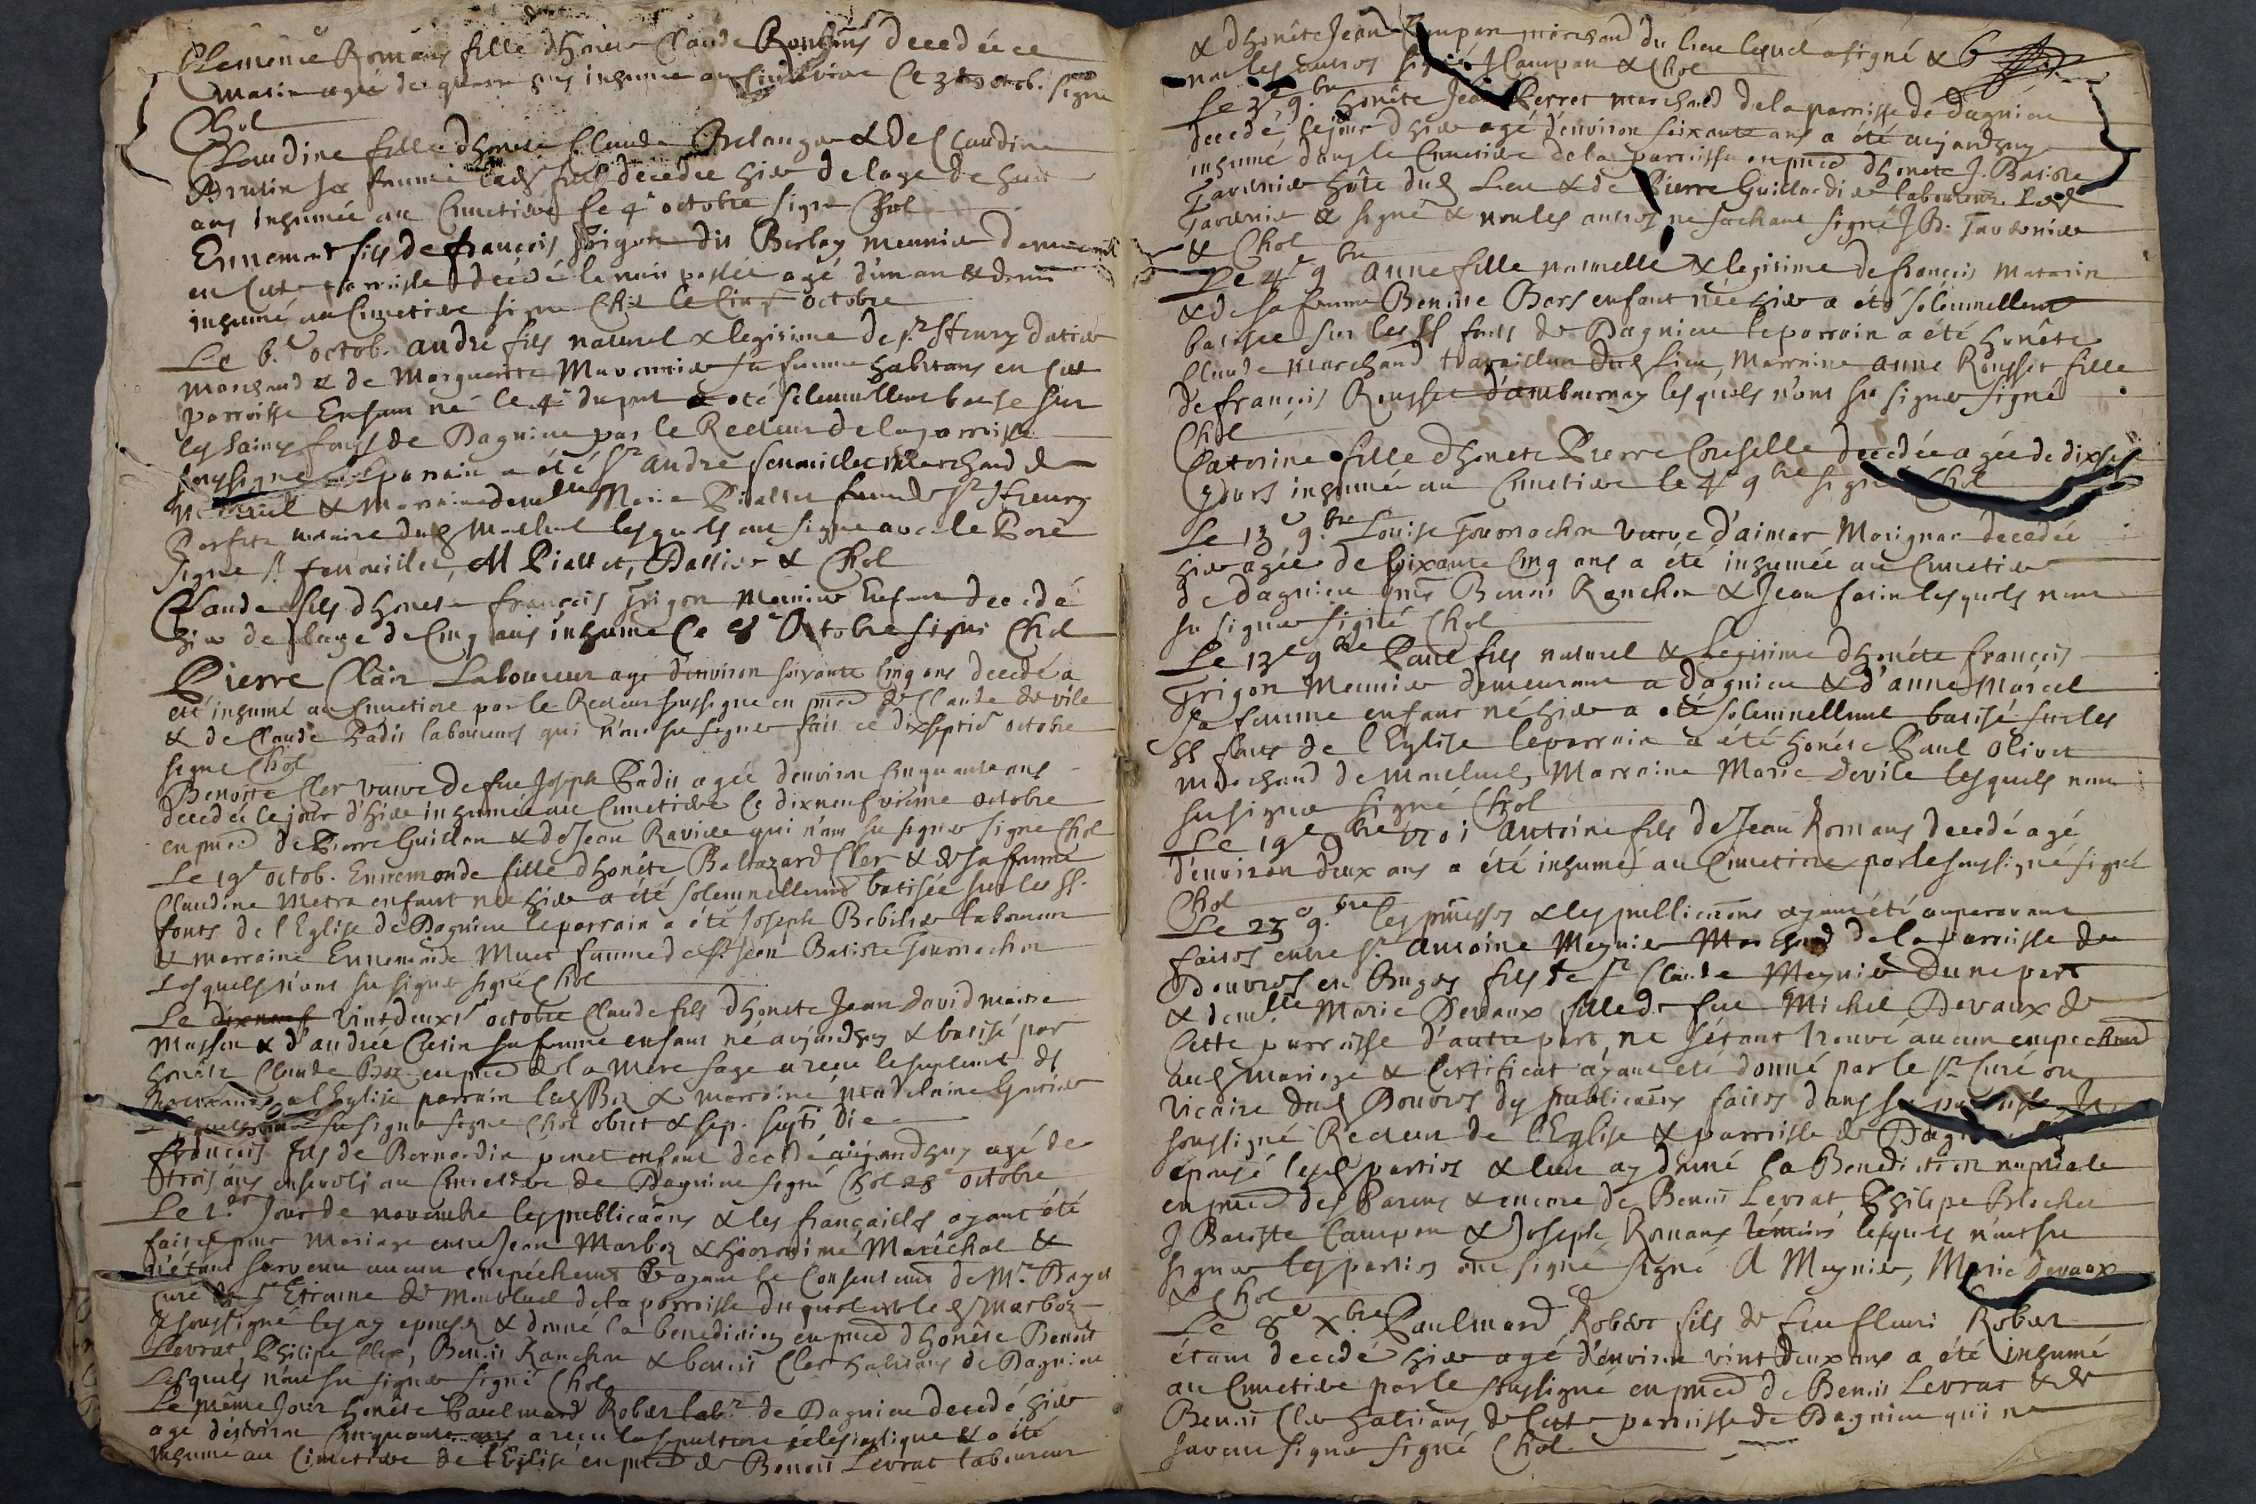 Clemence Romans fille d'honete Claude Romans decedée ce
matin agée de quatre ans inhumée au Cimetiere Ce 3e octob. signe
Chol
Claudine fille d'honete Claude Belanger & de Claudine
sa femme decedée hier de l'age de huit
ans inhumée au Cimetiere le 4e octobre signe Chol
Ennemont fils de françois Trigon dit Berlay meunier demeurant
en cette parroisse decedé la nuit passée agé d'un an & demi
inhumé au Cimetiere signe Chol le Cinq octobre
Le 6.e octob. andré fils naturel & legitime de sr. Henry datier
marchand & de Marguerite sa femme habitans en cette
parroisse Enfant né le 4e du pnt a eté solemnellemt batisé sur
les saints fonts de Dagnieu par le Recteur de la parroisse
soussigné le parrain a été sr. andré fenouillet Marchand de
Montluel & Marraine demlle Marie Piallet femme de sr. Henry
notaire dud Montluel lesquels ont signe avec le Pere
signe A. fenouillet, M Piallet, Dattier & Chol
Claude fils d'honeste françois Trigon Meunier Enfant decedé
hier de l'age de Cinq ans inhumé Ce 8e Octobre signé Chol
Pierre Clair Laboureur agé d'environ soixante cinq ans decedé a
eté inhumé au Cimetiere par le Recteur soussigné en pnce de Claude devile
& de Claude Padis laboureurs qui n'ont su signer fait ce dixseptie octobre
signe Chol
Benoite Cler vuive de feu Joseph Padit agée d'environ cinquante ans
decedée le jour d'hier inhumée au Cimetiere Ce dixneufvieme octobre
en pnce de Pierre Guillon & de Jean Ravier qui n'ont su signer signe Chol
Le 19e octob. Ennemonde fille d'honéte Baltazard Cler & de sa femme
Claudine Metra enfant née hier a été solemnellemt batisée sur les ss.
fonts de l'Eglise de Dagnieu le parrain a été Joseph Bebilier laboureur
& marraine Ennemonde Muet femme de sr. Jean Batiste Tournachon
Lesquels n'ont su signer signé Chol
Le dixneuf vint deuxe octobre Claude fils d'honeste Jean David maitre
Masson & d'andrée Cusin sa femme enfant né aujourdhuy & batisé par
honéte Claude Boz en pnce de la Mere sage a receu le suplemt des
a l'Eglise parrain led Boz & marraine Magdelaine
su signer signe Chol obiit & sep. supti die
françois fils de Bernardin ponet enfant decedé aujourdhuy agé de
trois ans enseveli au Cimetiere de Dagnieu signé Chol 28e octobre
Le 1.er Jour de novembre les publicaôns & les françailles ayant été
faites pour Mariage entre Jean Marboz & hieronime Maréchal &
n'étant survenu aucun empéchemt & ayant le Consentemt de Mr. Dayet
curé de st Etienne de Montluel de la parroisse duquel est led Marboz
Je soussigné les ay epousez & donné la benediction en pnce d'honéte Benoit
Levrat, Philipe Cler, Benoit Ranchon & benoit Cler habitans de Dagnieu
Lesquels n'ont su signer signé Chol
Le même Jour honéte Paulmard Rober labr. de Dagnieu decedé hier
agé d'environ Cinquante ans a receu la sepulture eclesiastique & a été
inhumé au Cimetiere de l'Eglise en pnce de Benoit Levrat laboureur
& d'honéte Jean Campan marchand du lieu lequel a signé & b
non les autres signé J Campan & Chol
Le 3e 9.bre honéte Jean Perret marchand de la parroisse de dagnieu
decedé le jour d'hier agé d'environ soixante ans a été aujourdhuy
inhumé dans le Cimetiere de la parroisse en pnce d'honete J. Batiste
Tavernier hôte dud Lieu & de Pierre Guillardier laboureur. Led
Tavernier a signé & non les autres ne sachant signé J B. Tavernier
& Chol
Le 4e 9bre anne fille naturelle & legitime de françois Matarin
& de sa femme Benoite Bors enfant née hier a été solemnellemt
batisée sur les ss fonts de Dagnieu le parrain a été honéte
Claude Marchand travailleur dud lieu, Marraine anne Rousset fille
de françois Rousset d'ambournay lesquels n'ont su signer signé
Chol
Catorine fille d'honete Pierre Couselle decedée agée de dixsept
jours inhumée au Cimetiere le 4e 9bre signé Chol
Le 13e 9.bre Louise Tournachon vuive d'aimar Marignar decedée
hier agée de soixante Cinq ans a été inhumée au Cimetiere
de Dagnieu pnts Benoit Ranchon & Jean farin lesquels n'ont
su signer signé Chol
Le 13e 9bre Paul fils naturel & legitime d'honéte françois
Trigon Meunier demeurant a dagnieu & d'anne Marcel
sa femme enfant né hier a été solemnellemt batisé sur les
ss fonts de l'Eglise le parrain a été honéte Paul Olivet
marchand de Montluel, Marraine Marie Devile lesquels n'ont
su signer signé Chol
Le 19e 9bre 1701 antoine fils de Jean Romans decedé agé
d'environ deux ans a été inhumé au Cimetiere par le soussigné signé
Chol
Le 23e 9.bre les pmesses & les publicaôns ayant été auparavant
faites entre sr. antoine Meynier Marchand de la parroisse de
Douvres en Bugey fils de sr Claude Meynier d'une part
& demlle Marie Devaux fille de feu Michel Devaux de
Cette parroisse d'autre part, ne s'étant trouvé aucun empechemt
aud mariage & Certificat ayant eté donné par le sr. Curé ou
vicaire dud Douvres des publicaôns faites dans sa parroisse Je
soussigné Recteur de l'Eglise & parroisse de Dagnieu ay
epousé lesd parties & leur ay donné la Benediction nuptiale
en pnce des Parens & encore de Benoit Levrat, Philipe Blochet
J Batiste Campan & Joseph Romans temoins lesquels n'ont su
signer les parties ont signé signé A Meynier, Marie devaux
& Chol
Le 8e Xbre Paulmard Rober fils de feu fleuri Rober
étant decedé hier agé d'environ vint deux ans a été inhumé
au Cimetiere par le soussigné en pnce de Benoit Levrat & de
Benoit Cler habitans de Cette parroisse de Dagnieu qui ne
savent signer signé Chol